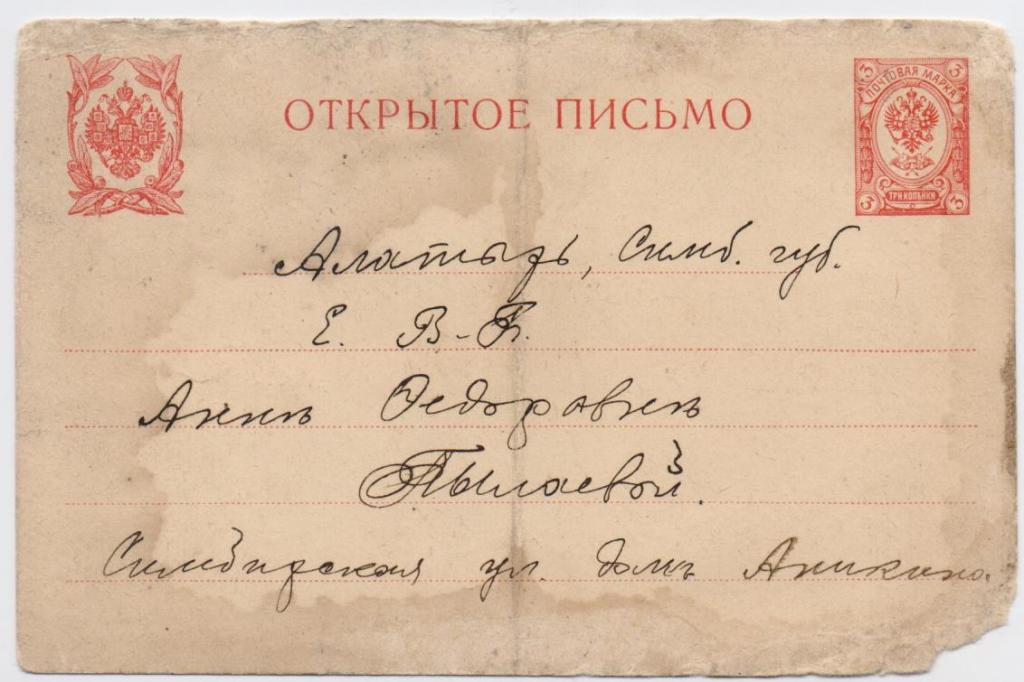 ОТКРЫТОЕ ПИСЬМО
3 3
ПОЧТОВАЯ МАРКА
ТРИ КОПѢЙКИ
3 3
Алатырь, Симб. губ.
Е. В-Б.
Аннѣ Федоровнѣ
Пылаевой.
Симбирская ул. домъ Аникина.